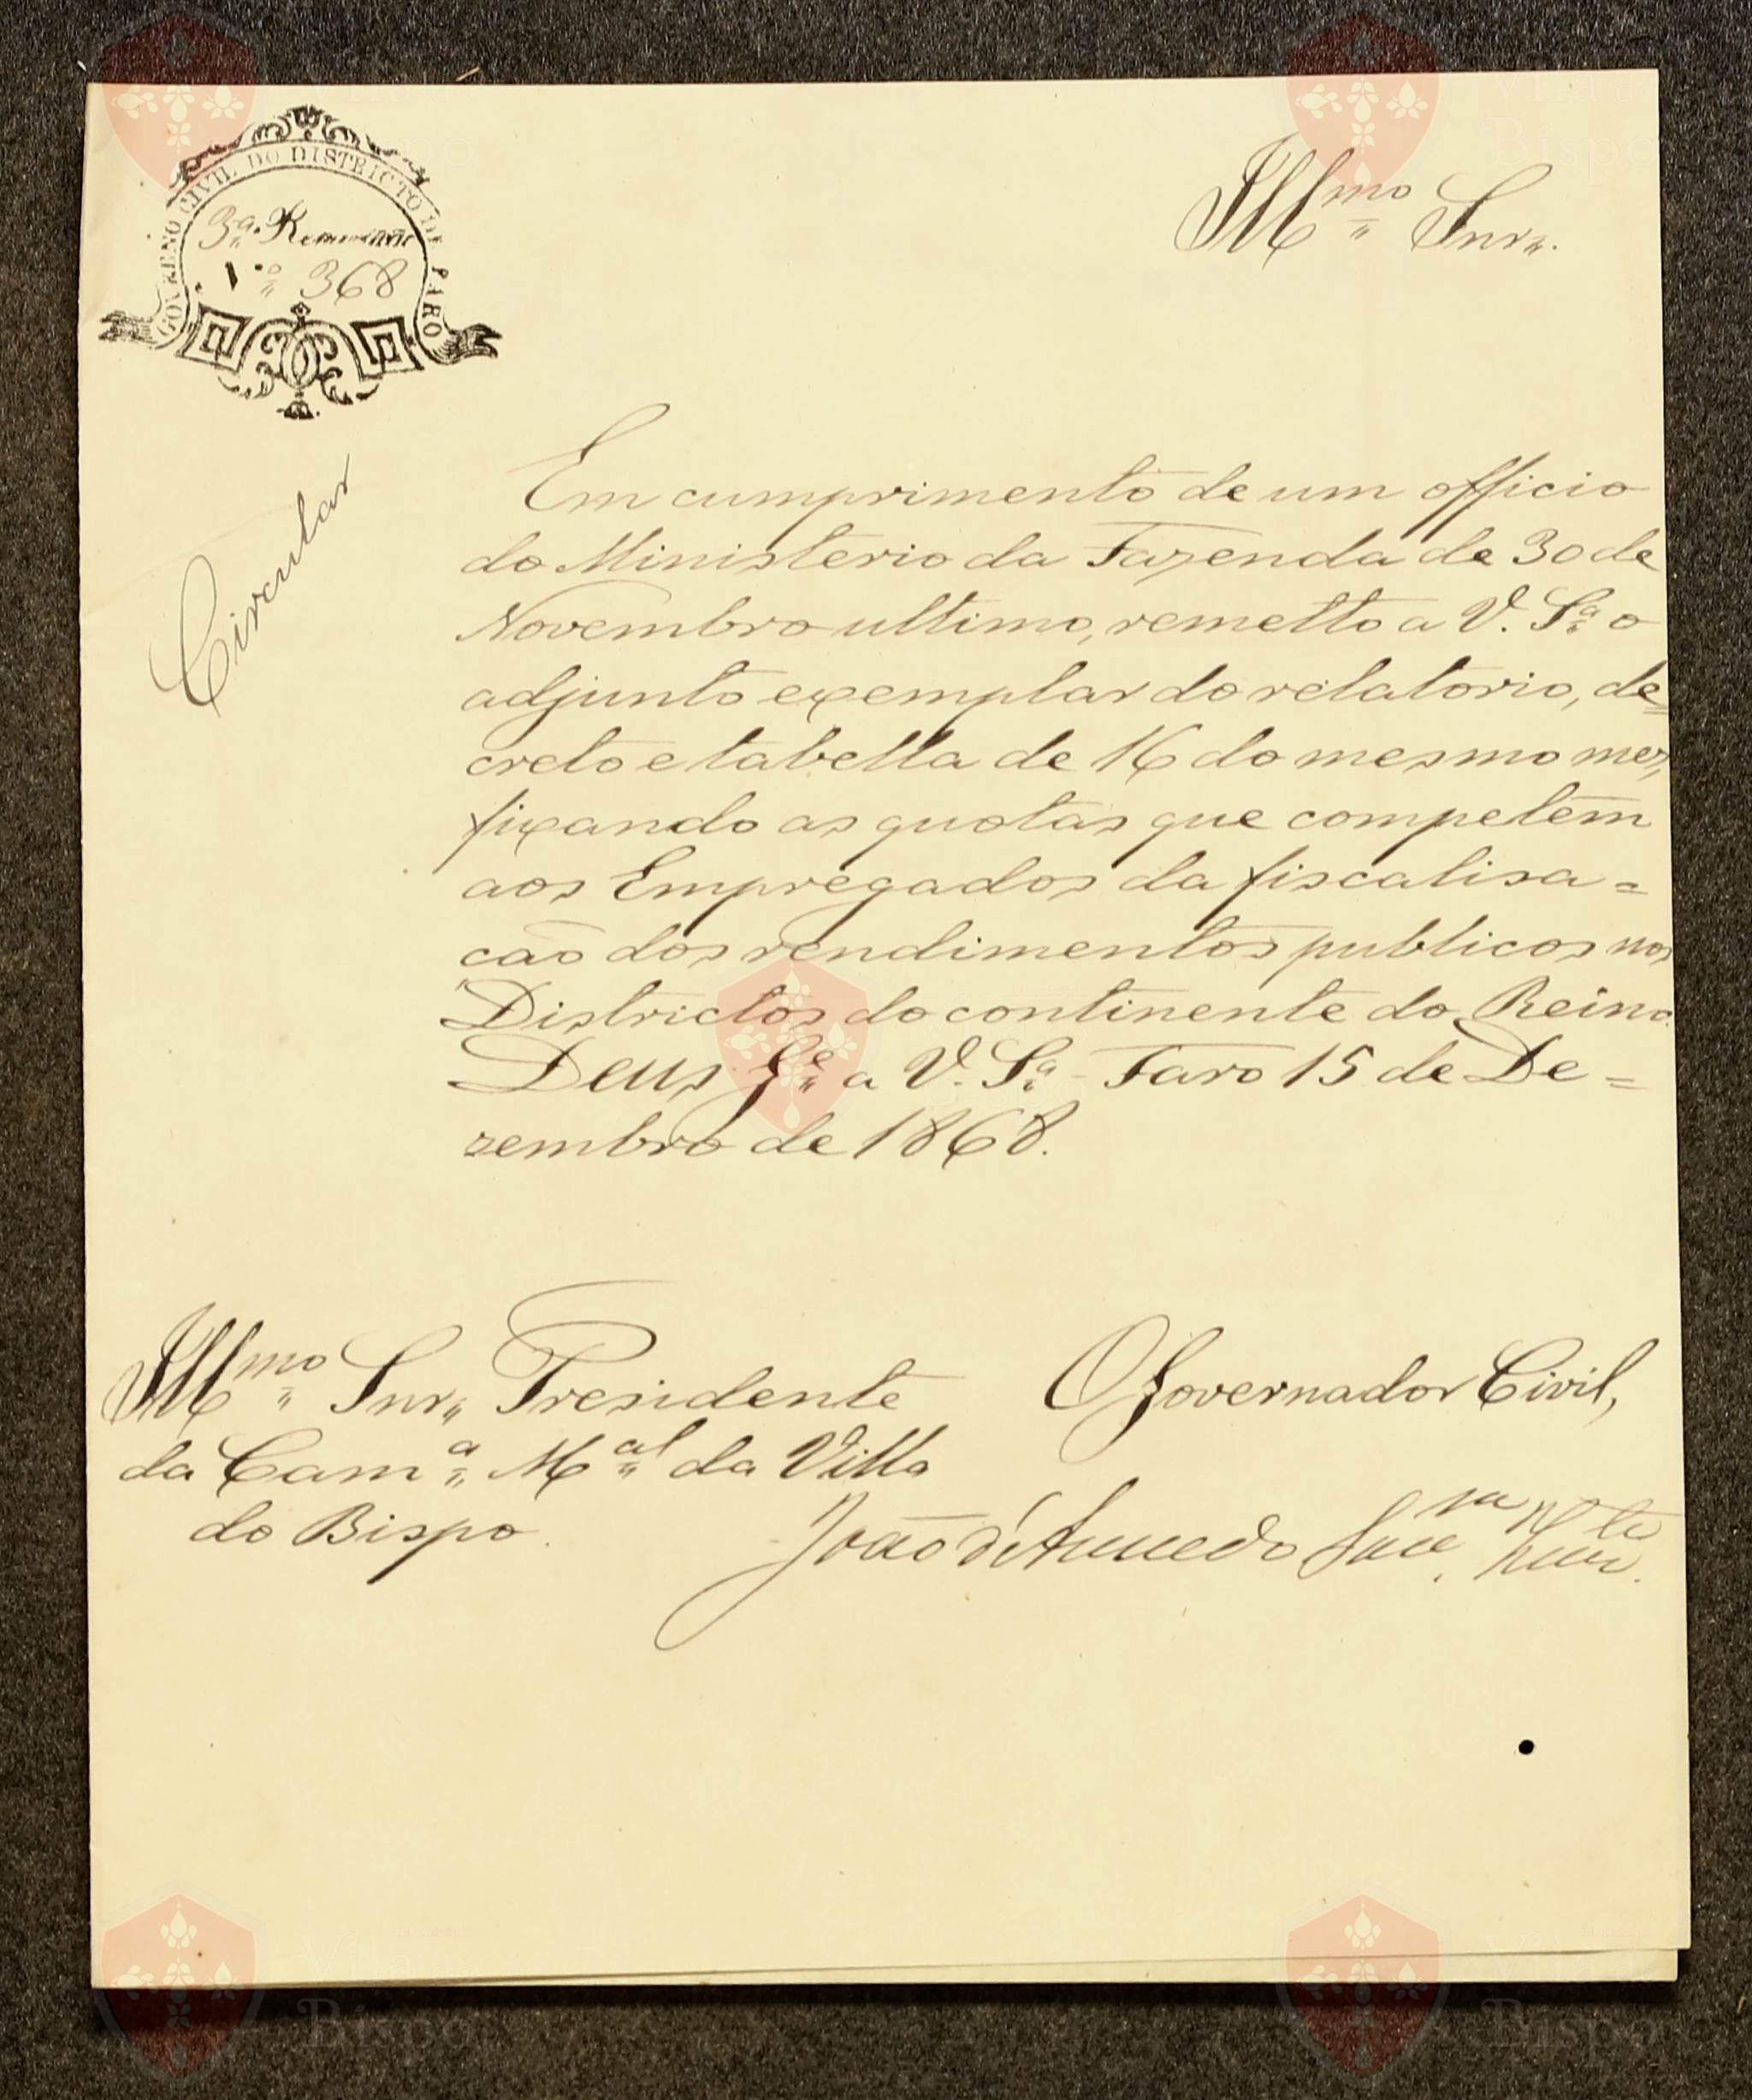 GOVERNO CIVIL DO DISTRICTO DE FARO
3.ª
N.º 368
Illmo Snr.
Circular
Em cumprimento de um officio
do Ministerio da Fazenda de 30 de
Novembro ultimo, remetto a V. Sª o
adjunto exemplar do relatorio, de=
creto e tabella de 16 do mesmo mez,
fixando as quotas que competem
aos Empregados da fiscalisa=
cão dos rendimentos publicos nos
Districtos do continente do Reino
Deus Ge a V. Sª - Faro 15 de De=
zembro de 1868.
Illmo Snr. Presidente
da Camª Mal da Villa
do Bispo.
O Governador Civil,
João d'
Bispo
Bispo
Bispo